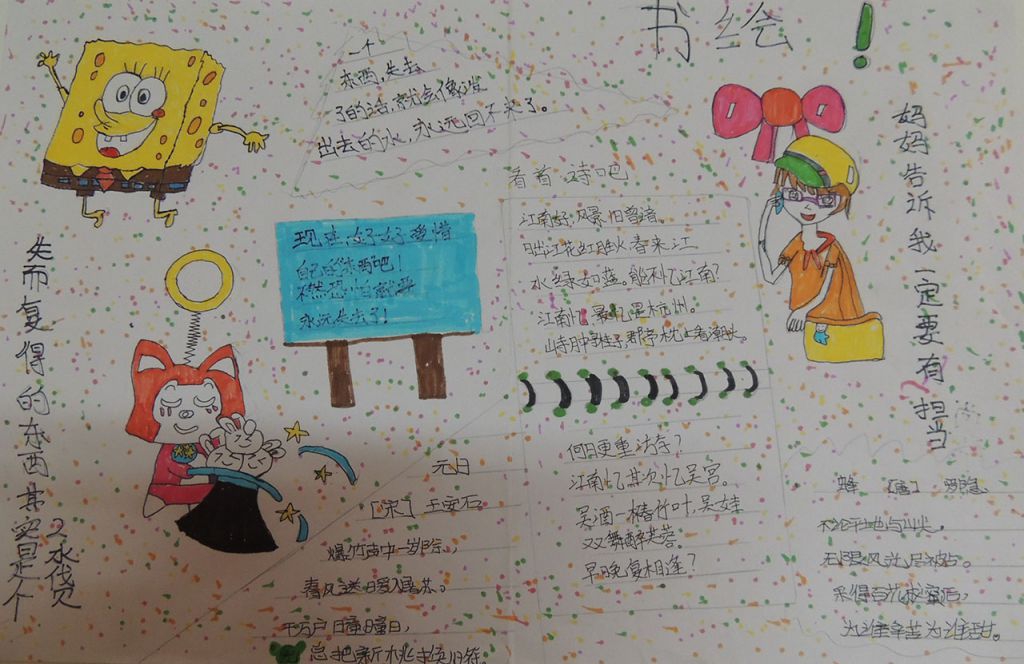 书绘！
东西,失去
了的话,就会像泼
出去的水,永远回不来了。
现在,好好爱惜
自己的东西吧！
不然恐怕就要
永远失去了！
失而复得的东西其实是个
看首诗吧
江南好,风景旧曾谙。
日出江花红胜火春来江
水绿如蓝。能不忆江南？
江南忆,最忆是杭州。
山寺月中寻桂子,郡亭枕上看潮头。
何日更重游？
江南忆其次忆吴宫。
吴酒一杯春竹叶,吴娃
双舞醉芙蓉。
早晚复相逢？
妈妈告诉我一定要有担当
元日
[宋] 王安石
爆竹声中一岁除,
春风送暖入屠苏。
千万户曈曈日,
总把新桃换旧符。
蜂 [唐] 罗隐
不论平地与山尖,
无限风光尽被占。
采得百花成蜜后,
为谁辛苦为谁甜。